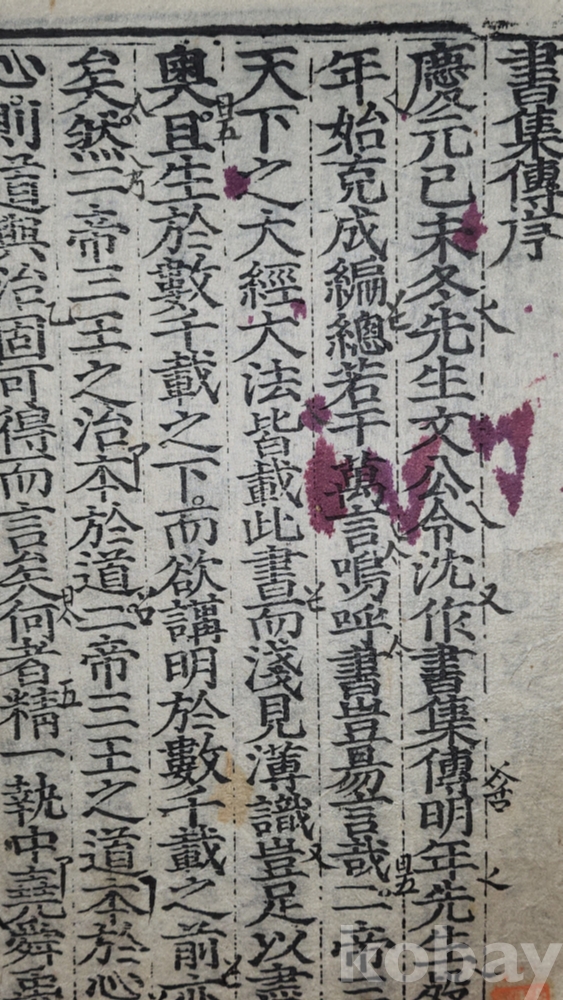 書集傳序
慶元己未冬先生文公令沈作書集傳明年先生歿
年始克成編總若干萬言嗚呼書豈易言哉二帝三
天下之大經大法皆載此書而淺見薄識豈足以盡
奧且生於數千載之下而欲講明於數千載之前
矣然二帝三王之治本於道二帝三王之道本於心
心則道與治固可得而言矣何者精一執中堯舜禹
kobay